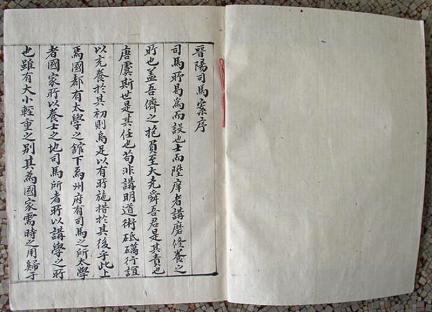 晉陽司馬案序
司馬所曷爲而設也士而陞庠者講磨修養之
所也盖吾儕之抱負至大堯舜吾君是其責也
唐虞斯世是其任也苟非講明道術砥礪行誼
以充養於其初則烏是以有所施措於其後乎此上
焉國都有太學之館下焉州府有司馬之所太學
者國家所以養士之地司馬所者所以講學之所
也雖有大小輕重之别其爲國家需時之用歸于